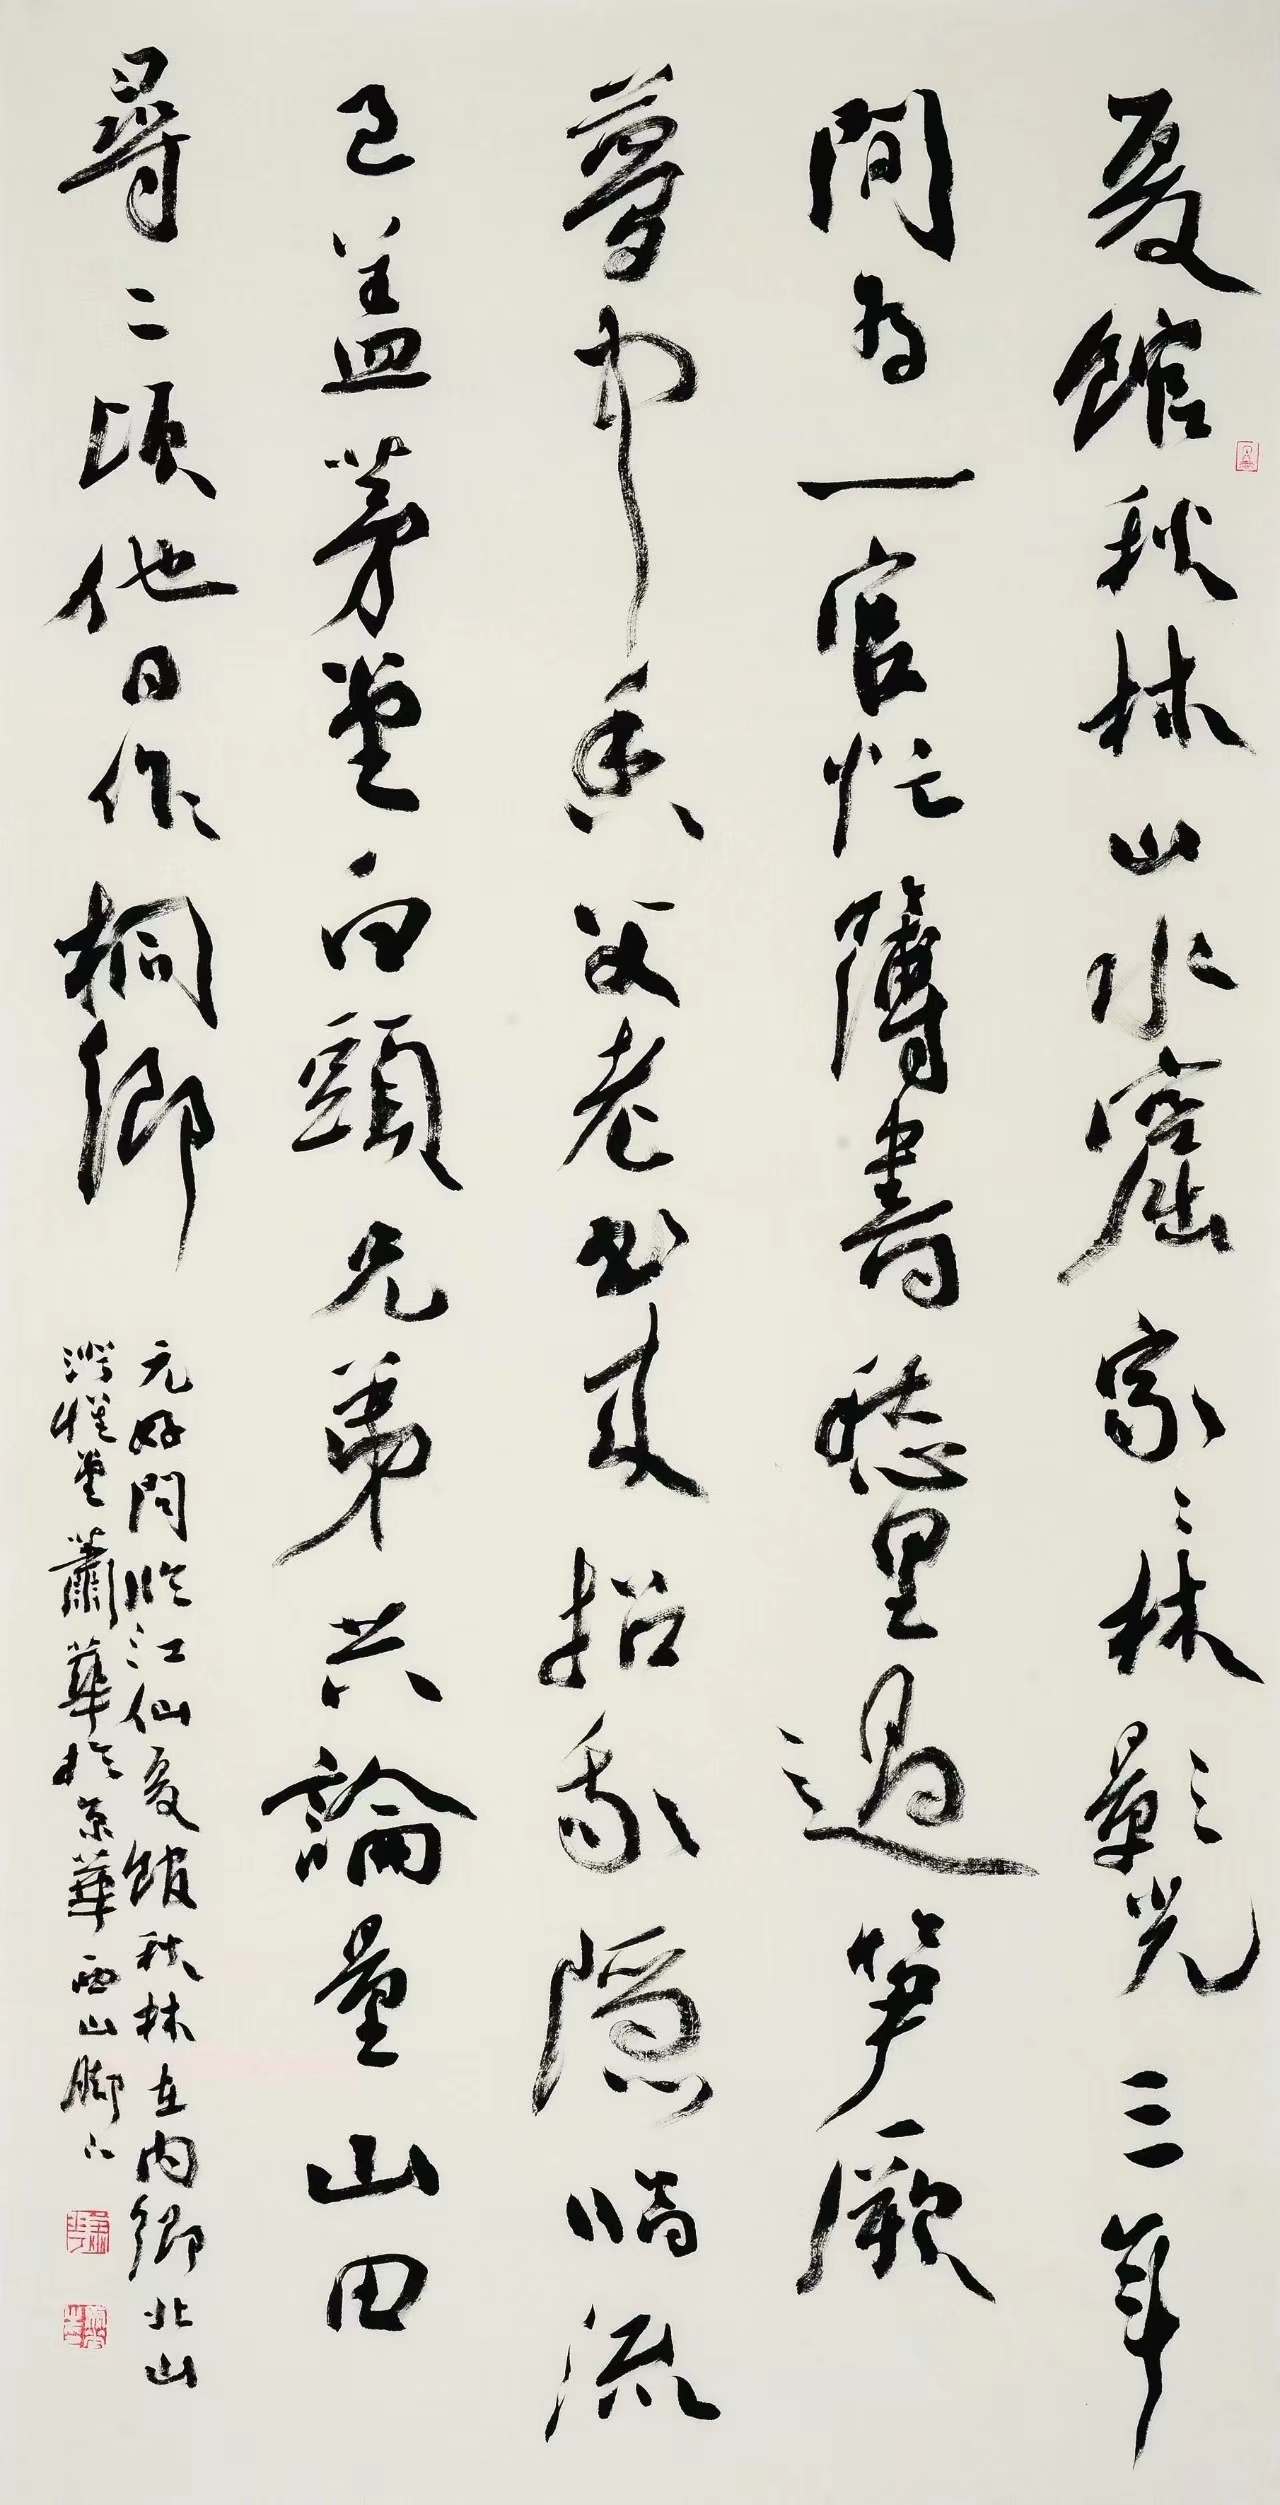 夏館秋林山水窟家〻林影光三年
間為一官忙簿書愁里過笋蕨
夢中香父老書來招我隱臨流
已蓋茅堂白頭兄弟共論量山田
尋二頃他日作桐鄉
元好問臨江仙夏館秋林在內鄉北山
堂蕭華於京華西山腳下